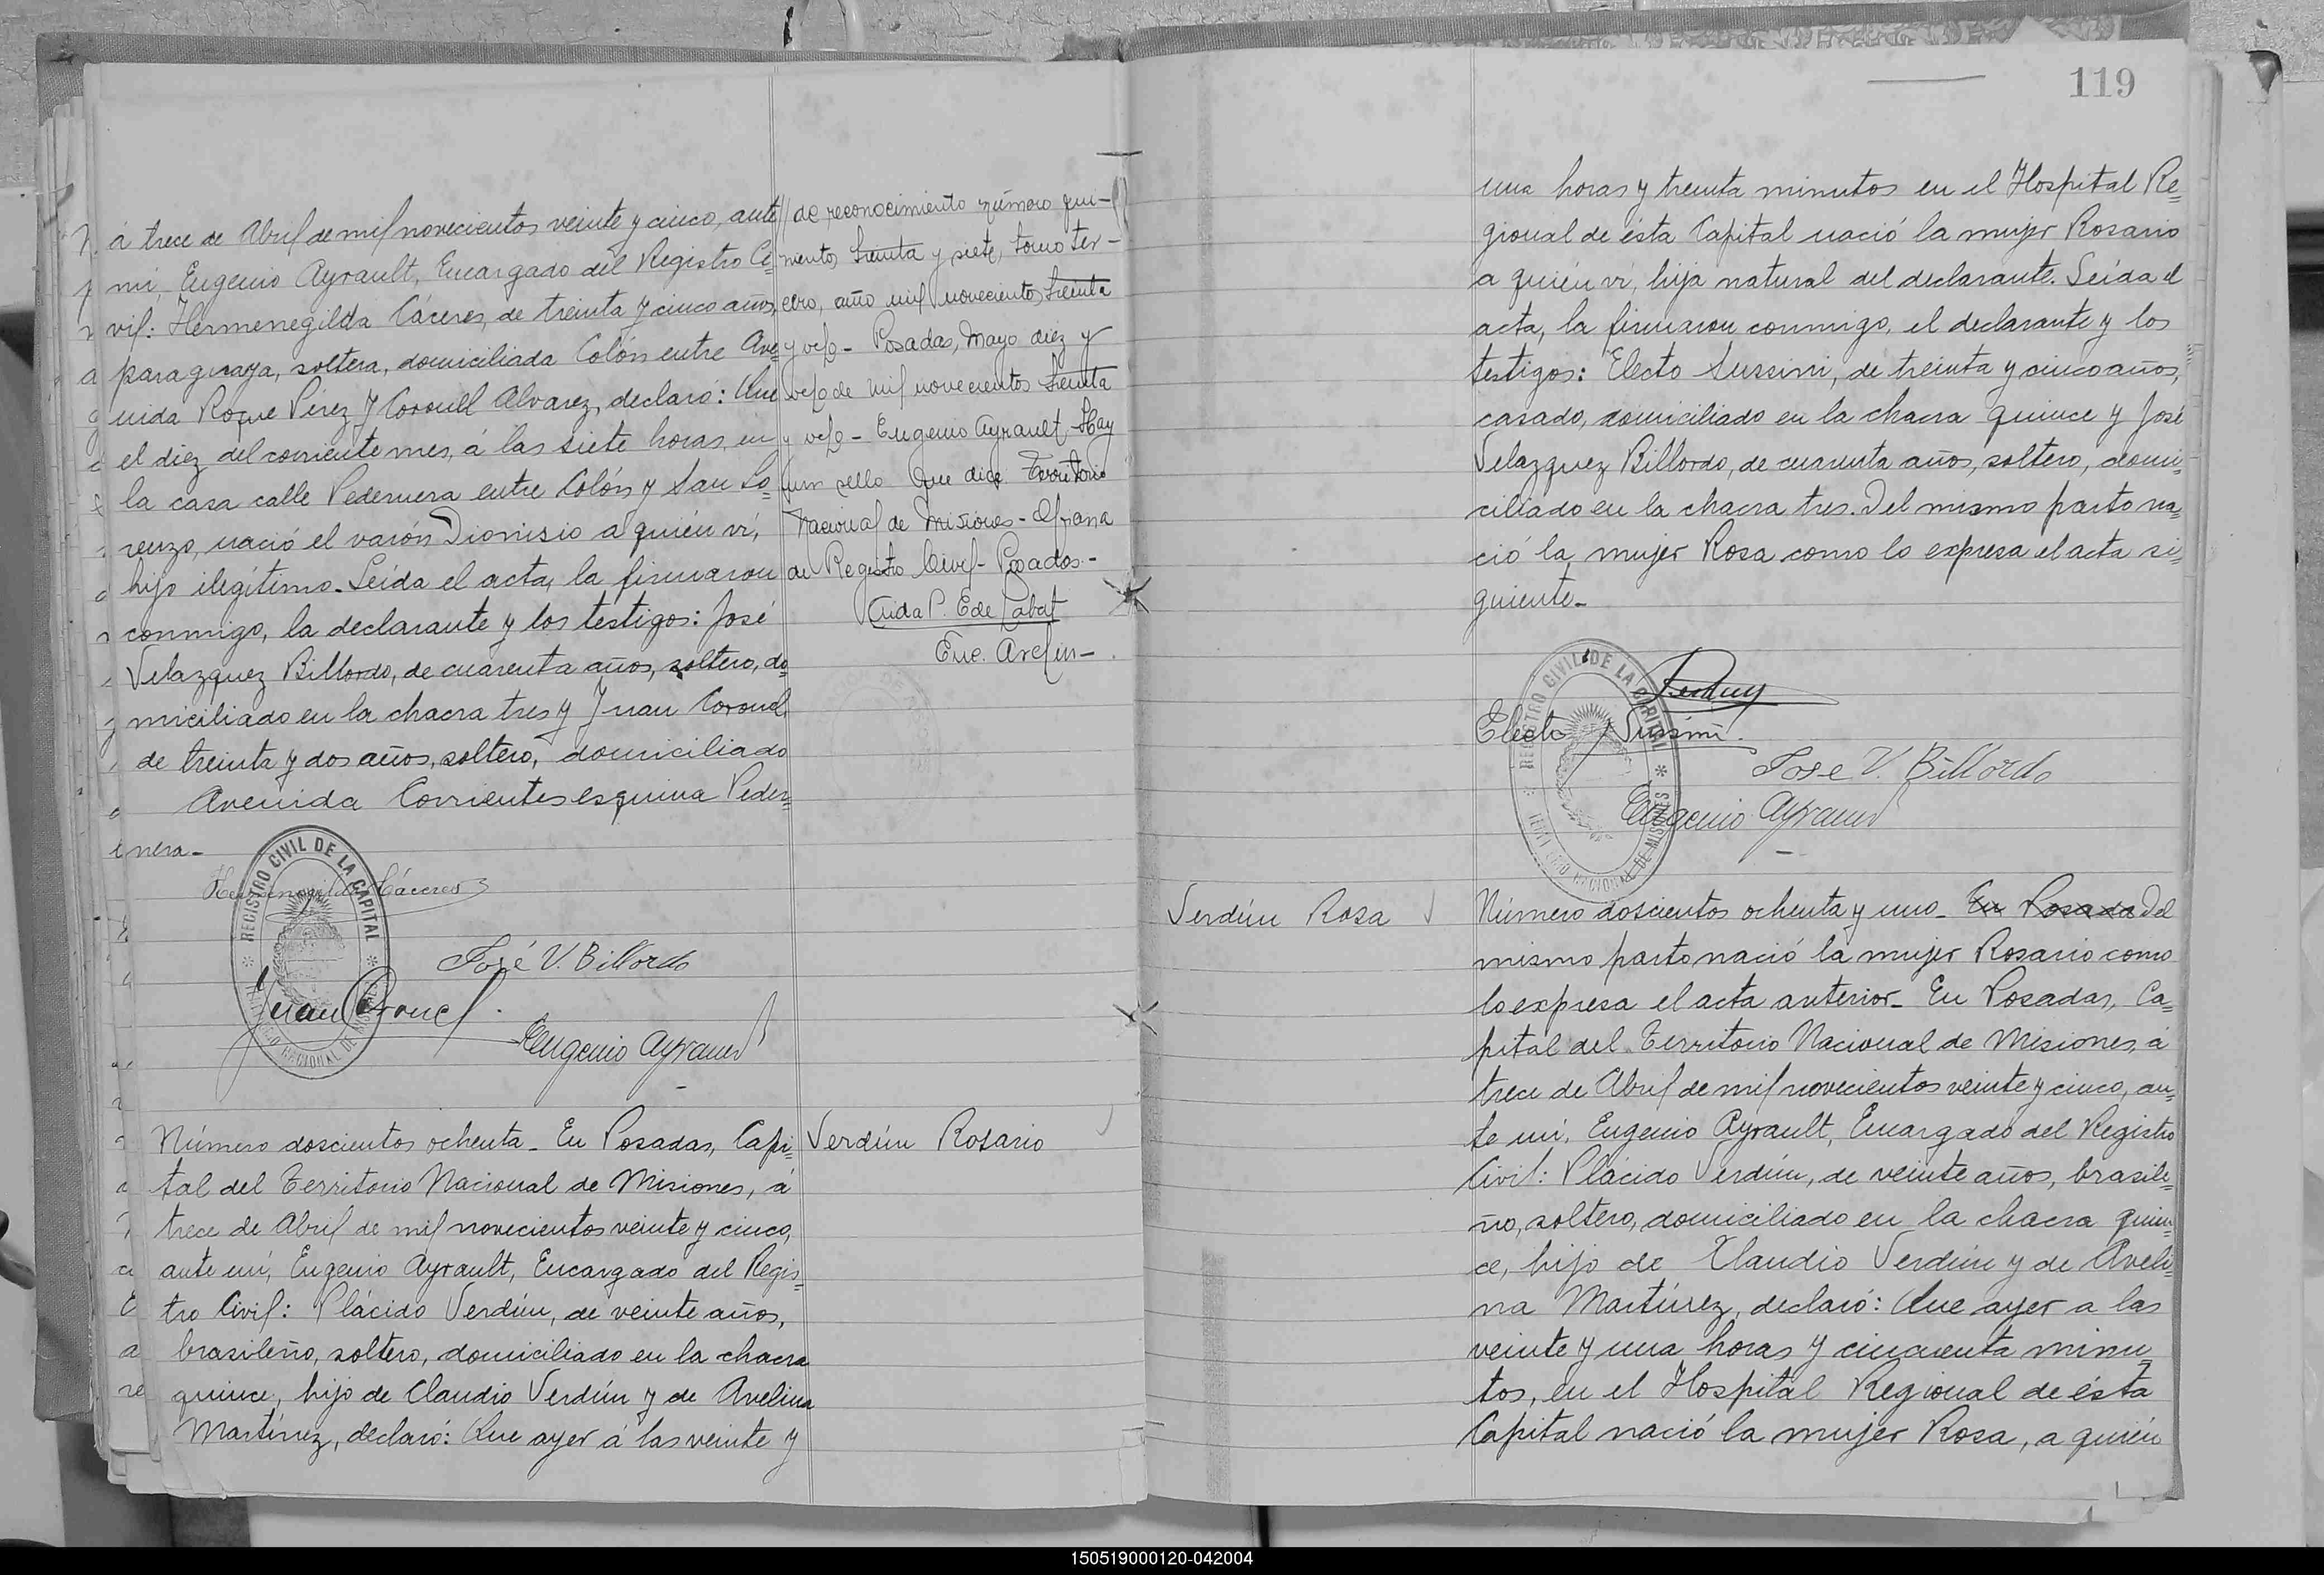 á trece de Abril de mil novecientos veinte y cinco, ante
mí, Eugenio Ayrault, Encargado del Registro Ci=
vil: Hermenegilda Cáceres, de treinta y cinco años,
paraguaya, soltera, domiciliada Colón entre Ave=
nida Roque Pérez y Coronel Alvarez, declaró: Que
el diez del corriente mes, á las siete horas, en
la casa calle Pedernera entre Colón y San Lo=
renzo, nació el varón Dionisio a quién ví,
hijo ilegítimo. Leída el acta, la firmaron
conmigo, la declarante y los testigos: José
Velazquez Billordo, de cuarenta años, soltero, do=
miciliado en la chacra tres y Juan Coronel,
de treinta y dos años, soltero, domiciliado
Avenida Corrientes esquina Peder=
nera.-
Hermenegilda Cáceres
José V. Billordo
Juan Coronel
Eugenio Ayrault
REGISTRO CIVIL DE LA CAPITAL
// de reconocimiento número qui-
nientos treinta y siete, tomo ter-
cero, año mil novecientos treinta
y ocho - Posadas, Mayo diez y
ocho de mil novecientos treinta
y ocho - Eugenio Ayrault - Hay
un sello que dice Territorio
Nacional de Misiones - Oficina
de Registro Civil - Posadas -
Aida P. E de Labat
Enc. Archivo-
Número doscientos ochenta - En Posadas, Capi=
tal del Territorio Nacional de Misiones, á
trece de Abril de mil novecientos veinte y cinco,
ante mí, Eugenio Ayrault, Encargado del Regis=
tro Civil: Plácido Verdún, de veinte años,
brasileño, soltero, domiciliado en la chacra
quince, hijo de Claudio Verdún y de Avelina
Martínez, declaró: Que ayer á las veinte y
Verdún Rosario
119
una horas y treinta minutos en el Hospital Re=
gional de ésta Capital nació la mujer Rosario
a quién ví, hija natural del declarante. Leída el
acta, la firmaron conmigo, el declarante y los
testigos: Electo Sussini, de treinta y cinco años,
casado, domiciliado en la chacra quince y José
Velazquez Billordo, de cuarenta años, soltero, domi=
ciliado en la chacra tres. Del mismo parto na=
ció la mujer Rosa como lo expresa el acta si=
guiente.-
Electo Sussini.
José V. Billordo
Eugenio Ayrault
REGISTRO CIVIL DE LA CAPITAL
TERRITORIO NACIONAL DE MISIONES
Verdún Rosa
Número doscientos ochenta y uno - En Posadas Del
mismo parto nació la mujer Rosario como
lo expresa el acta anterior - En Posadas, Ca=
pital del Territorio Nacional de Misiones, á
trece de Abril de mil novecientos veinte y cinco, an=
te mí, Eugenio Ayrault, Encargado del Registro
Civil: Plácido Verdún, de veinte años, brasile=
ño, soltero, domiciliado en la chacra quin=
ce, hijo de Claudio Verdún y de Aveli=
na Martínez, declaró: Que ayer a las
veinte y una horas y cincuenta minu=
tos, en el Hospital Regional de ésta
Capital nació la mujer Rosa, a quién
150519000120-042004